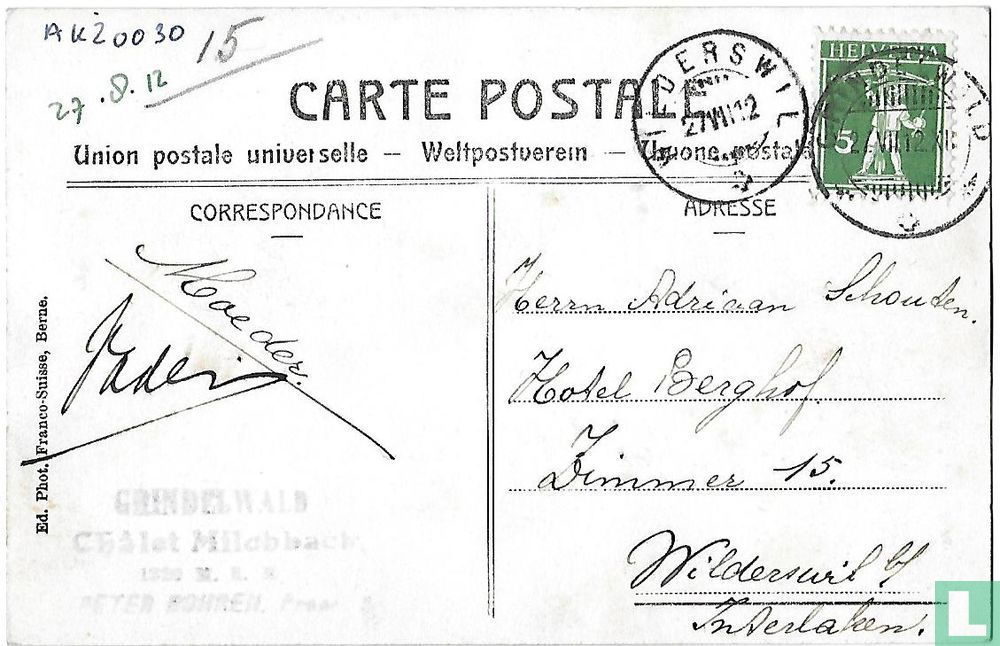 AK20030
15
27.8.12
CARTE POSTALE
Union postale universelle — Weltpostverein — Unione postale
CORRESPONDANCE
ADRESSE
HELVETIA
5
WILDERSWIL
27 VII 12
GRINDELWALD
Moeder.
Vader
Herrn Adriaan Schouten.
Hotel Berghof.
Zimmer 15.
Wilderswil b/
Interlaken.
Ed. Phot. Franco-Suisse, Berne.
GRINDELWALD
Châlet Milchbach
PETER BOHREN,
L